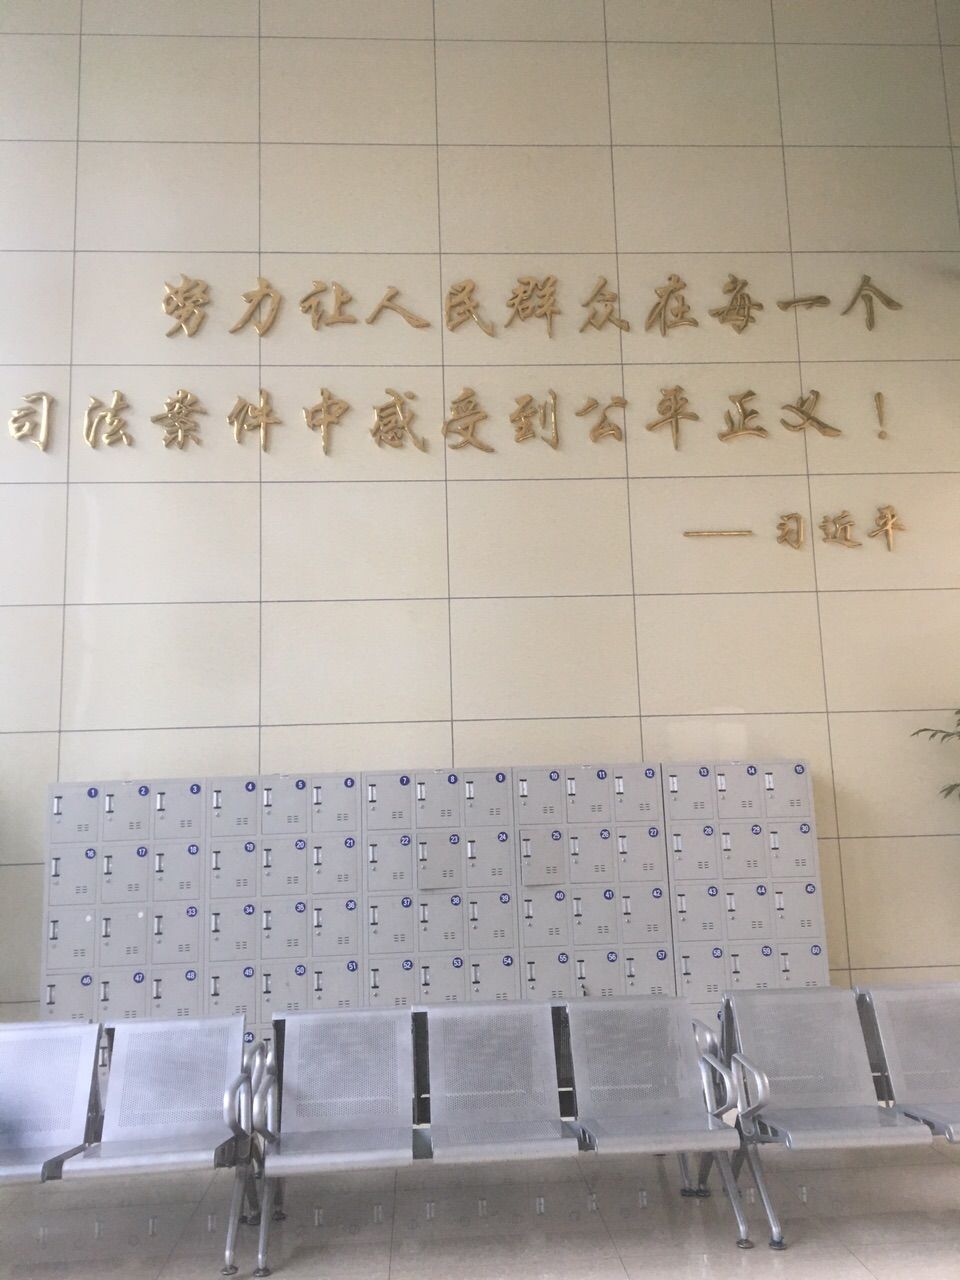 努力让人民群众在每一个
司法案件中感受到公平正义！
——习近平
1 2 3 4 5 6 7 8 9 10 11 12 13 14 15
16 17 18 19 20 21 22 23 24 25 26 27 28 29 30
33 34 35 36 37 38 39 40 41 42 43 44 45
46 47 48 49 50 51 52 53 54 55 56 57 58 59 60
64